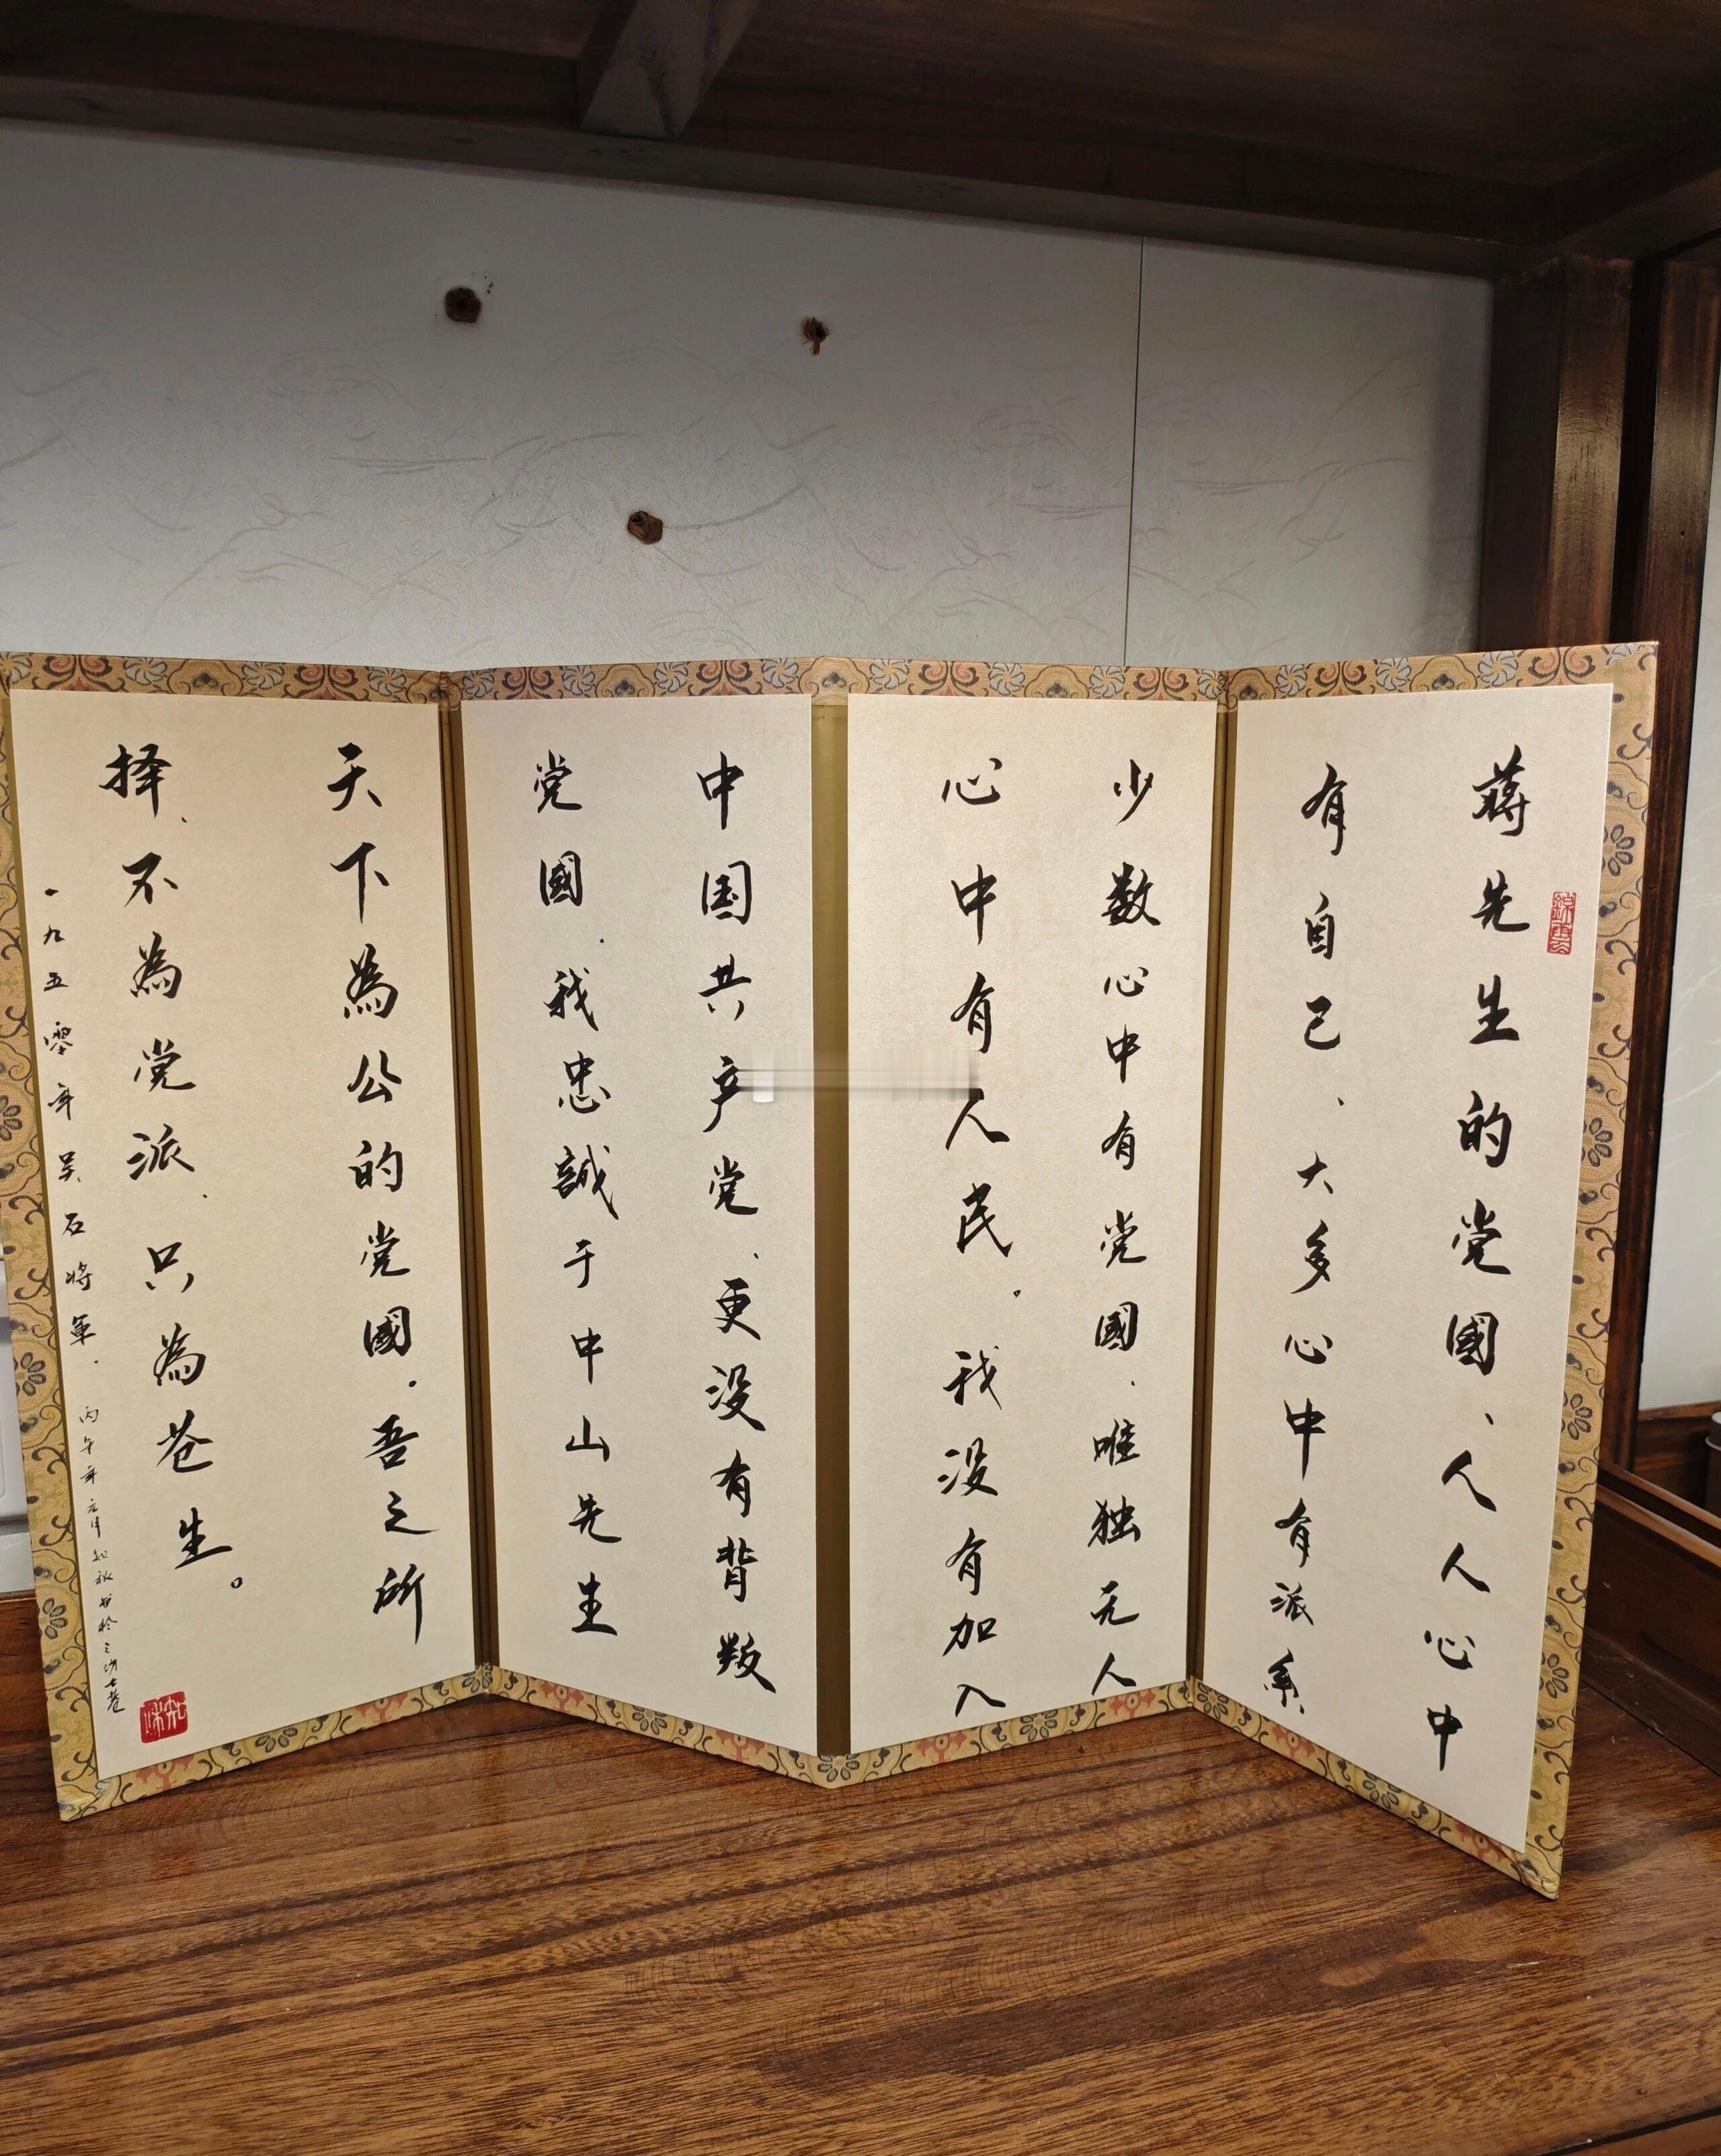 蒋先生的党國、人人心中
有自己、大多心中有派系
少数心中有党國、唯独无人
心中有人民。我没有加入
中国共产党、更没有背叛
党國、我忠誠于中山先生
天下為公的党國。吾之所
择、不為党派、只為苍生。
一九五零年吴石将軍.
丙午年元月知秋书於三坊七巷
知秋